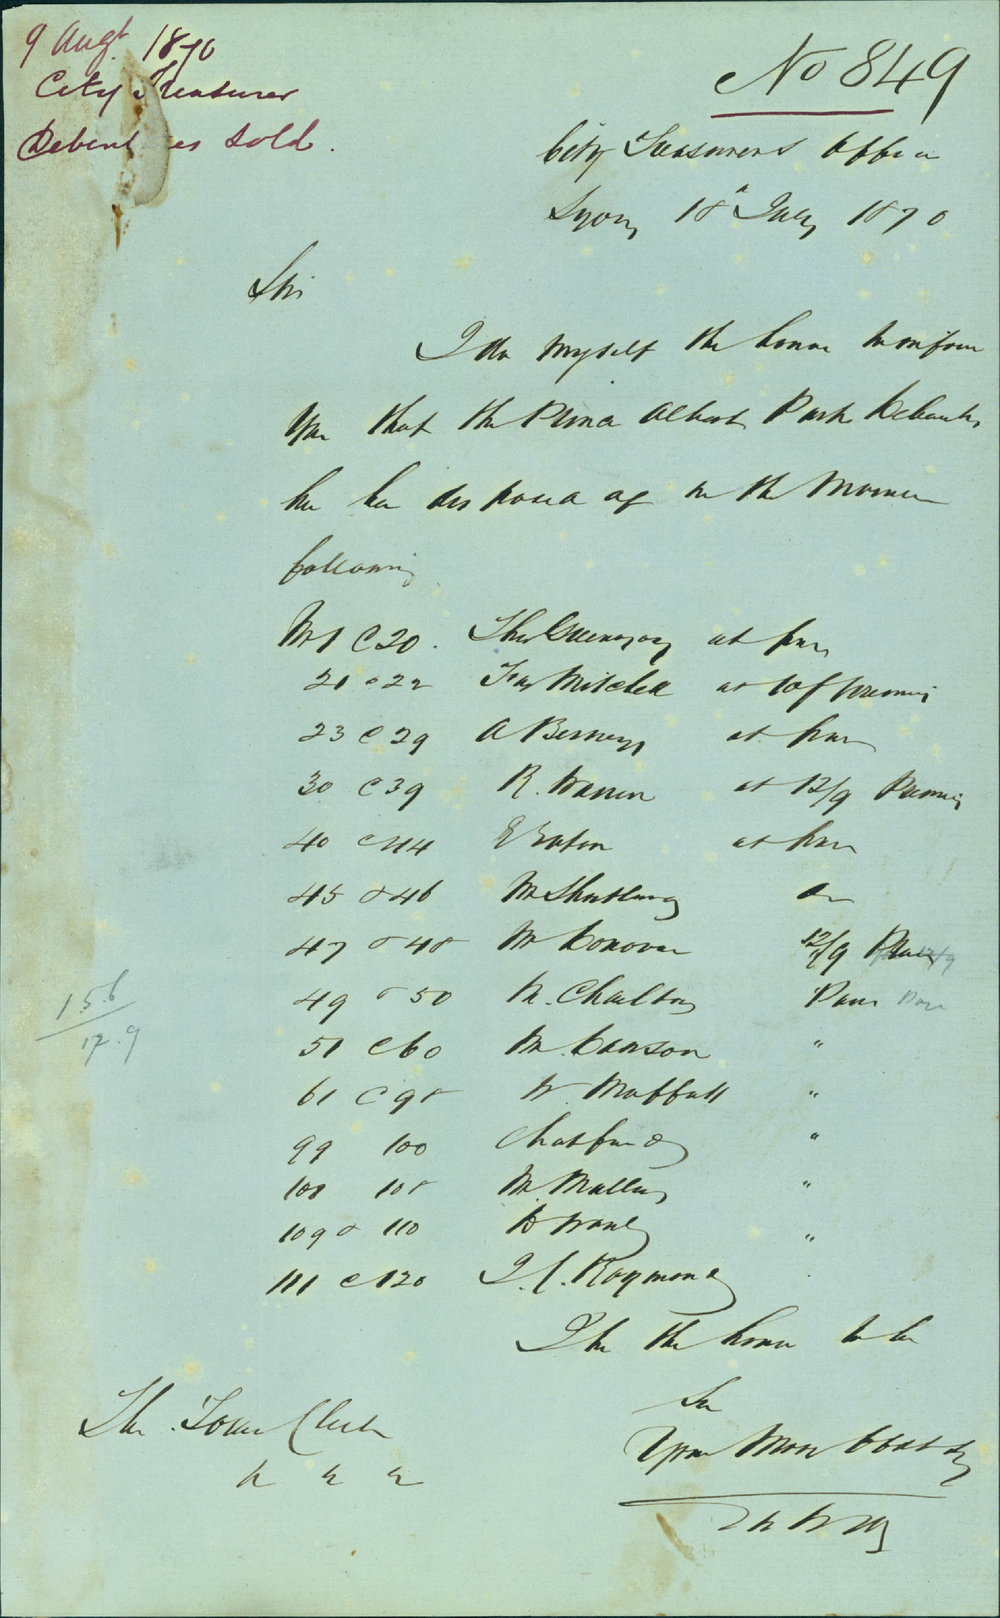 9 Augt 1870
City Treasurer
Debent es sold.
No 849
City Treasurers Office
Sydney 18th July 1870
Sir
I do myself the honor to inform
You that the Prince Albert Park Debentures
have been disposed of in the Manner
following
No 1 @ 20. Thos at par
21 & 22 Jas Mitchell at 10/ premium
23 @ 29 A at par
30 @ 39 R. Warren at 12/9 Premium
40 @ 44 at par
45 & 46 Mr
47 & 48 Mr Donovan 12/9
49 & 50 Mr. Charlton Par Par
51 @ 60 Mr. Dawson "
61 @ 98 W. Moffatt "
99 100 Chatfield "
101 108 Mr. "
109 & 110 "
111 @ 120 J. C. Raymond
15.6
17.9
I have the honor to be
Sir
Your Most Obedt
The Town Clerk